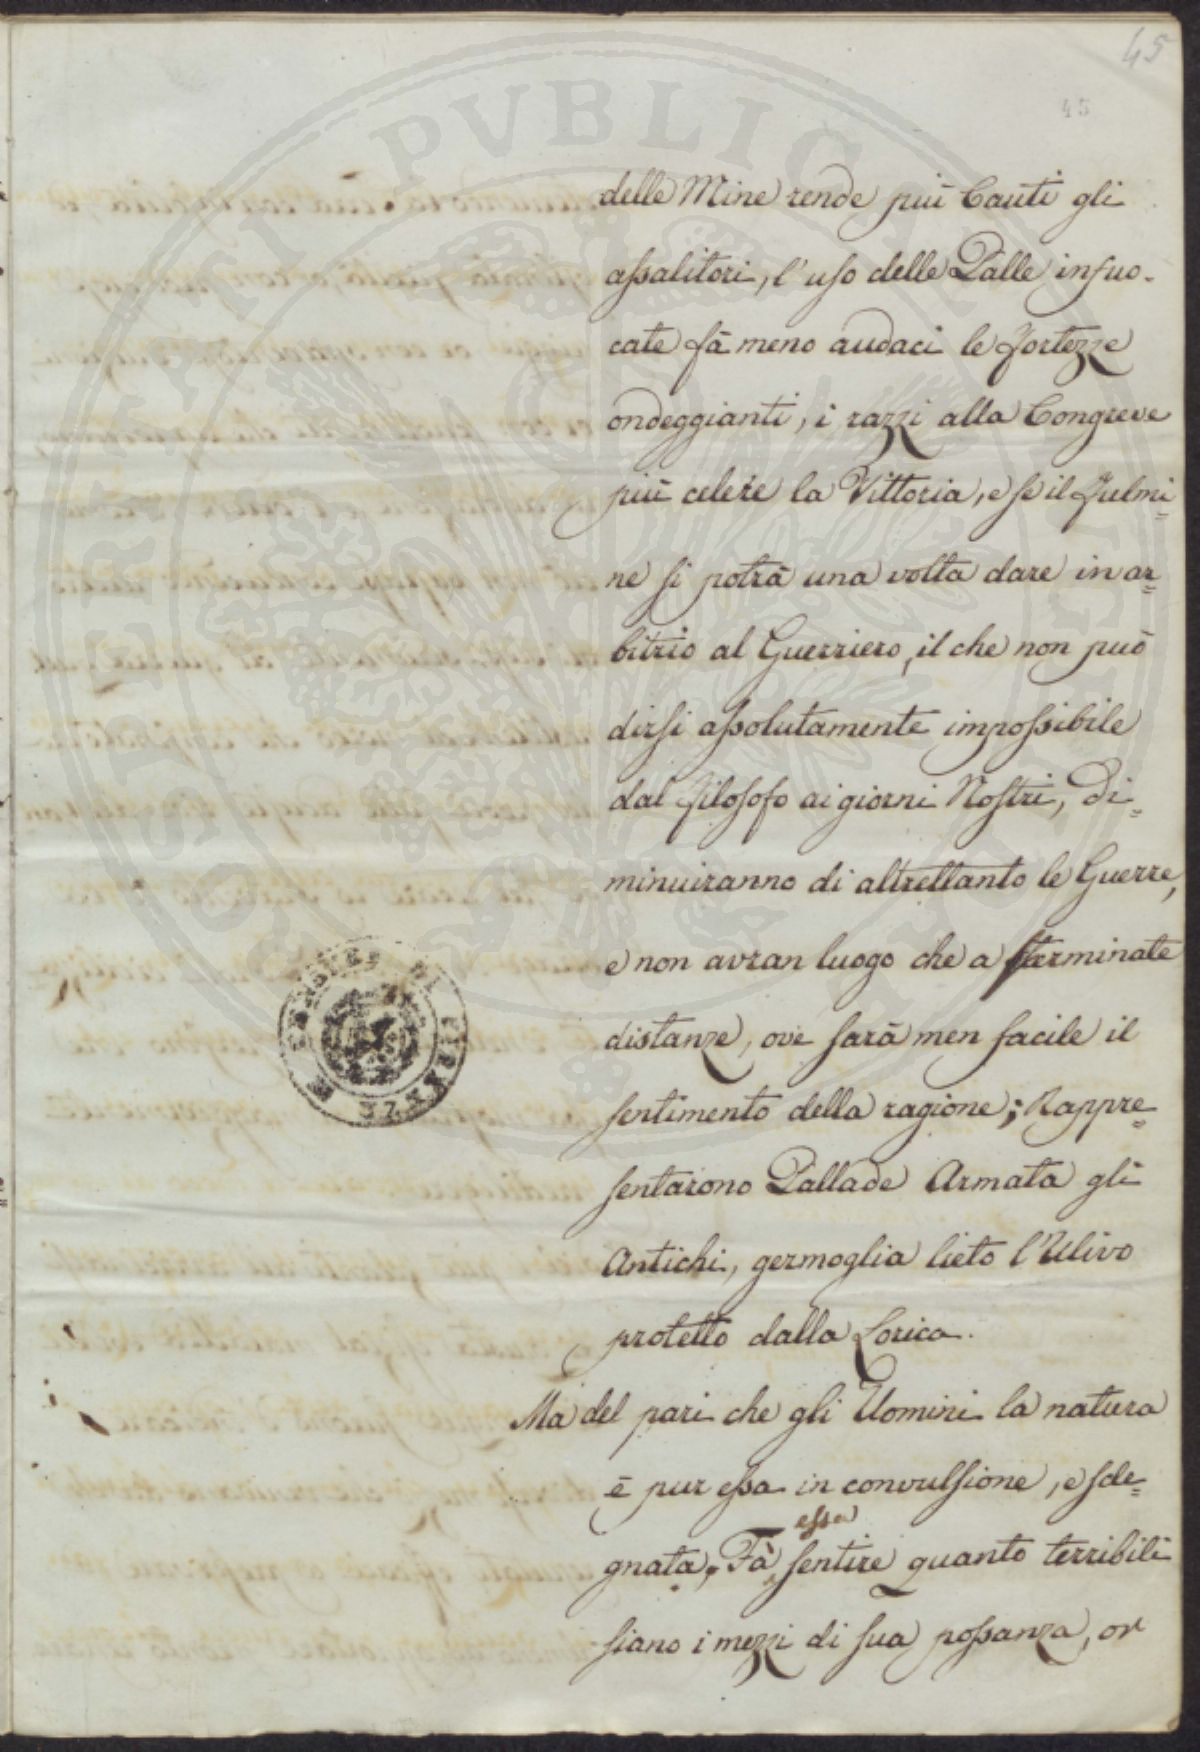 45
45
delle Mine rende più Cauti gli
assalitori, l'uso delle Palle infuo-
cate fà meno audaci le fortezze
ondeggianti, i razzi alla Congreve
più celere la Vittoria, e se il fulmi=
ne si potrà una volta dare in ar=
bitrio al Guerriero, il che non può
dirsi assolutamente impossibile
dal filosofo ai giorni Nostri, Di=
minuiranno di altrettanto le Guerre,
e non avran luogo che a sterminate
distanze, ove sarà men facile il
sentimento della ragione; Rappre=
sentarono Pallade Armata gli
Antichi, germoglia lieto l'Ulivo
protetto dalla Lorica.
Ma del pari che gli Uomini la natura
è pur essa in convulsione, e sde=
essa
gnata, Fà sentire quanto terribili
siano i mezzi di sua possanza, or